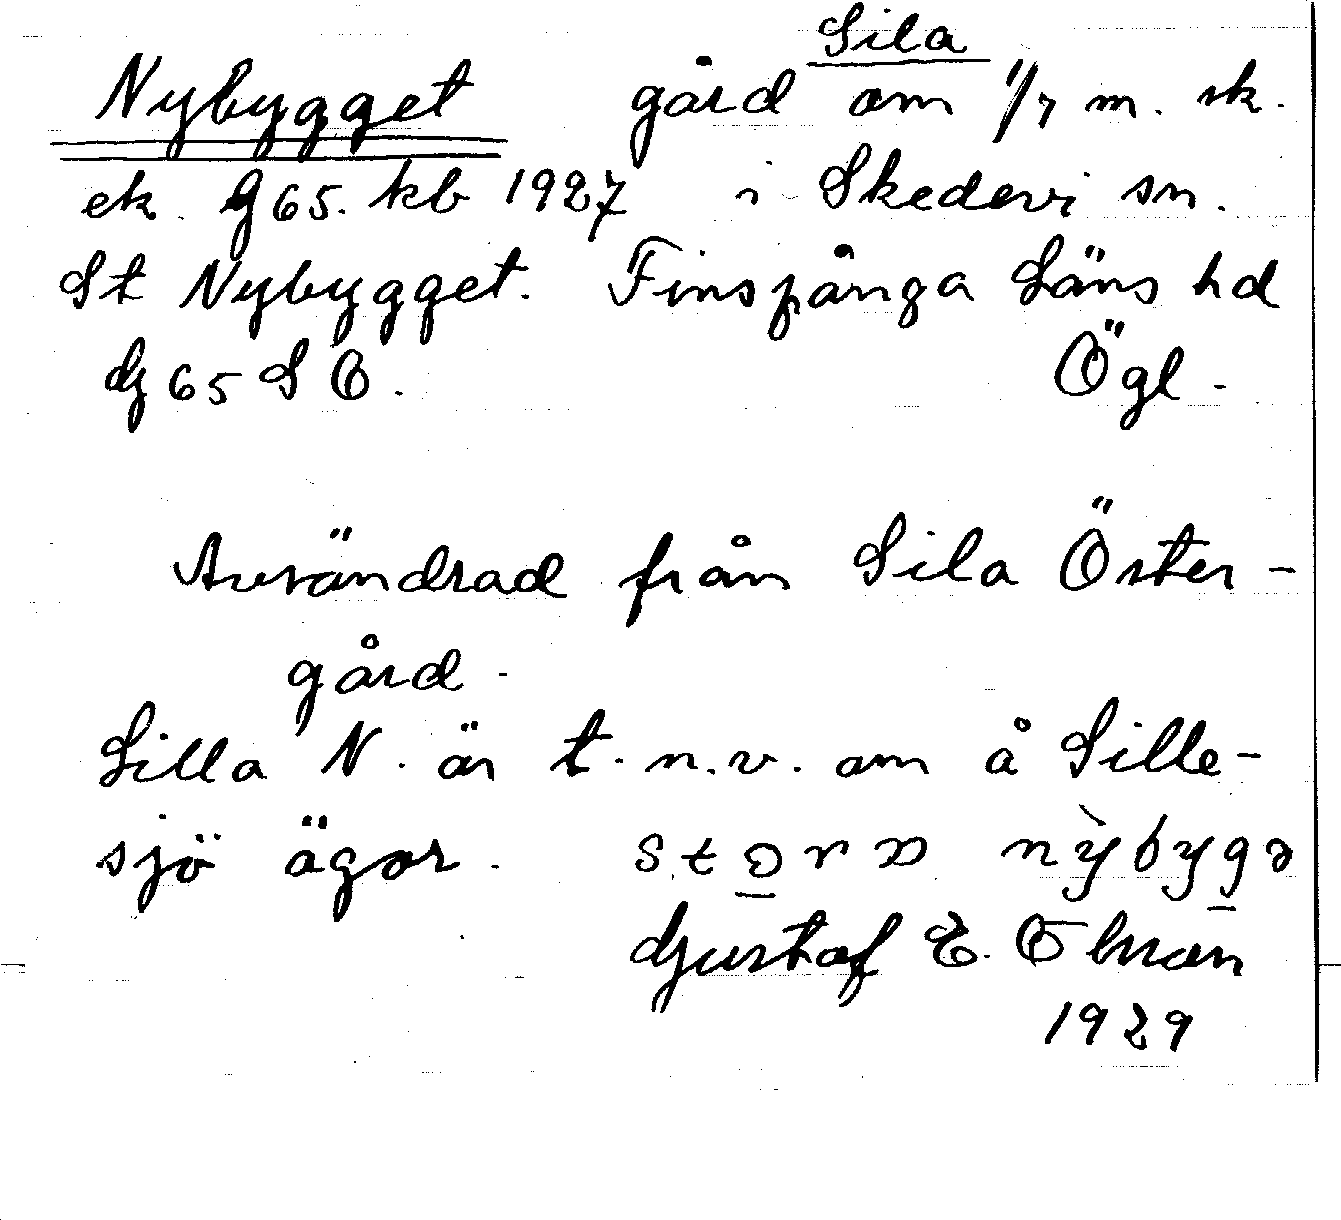 Sila
Nybygget gård om 1/7 m. sk.
ek. G65. kb 1927 i Skedevi sn.
St Nybygget. Finspånga Läns hd
G65 SO. Ögl.
Avsöndrad från Sila Öster-
gård.
Lilla N. är t.n.v. om å Sille-
sjö ägor. nỳbygə
Gustaf E. Öhman
1929